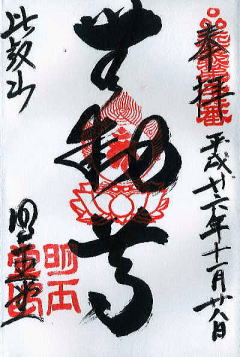 奉拝
平成廿六年十一月廿八日
無動
比叡山
明王堂